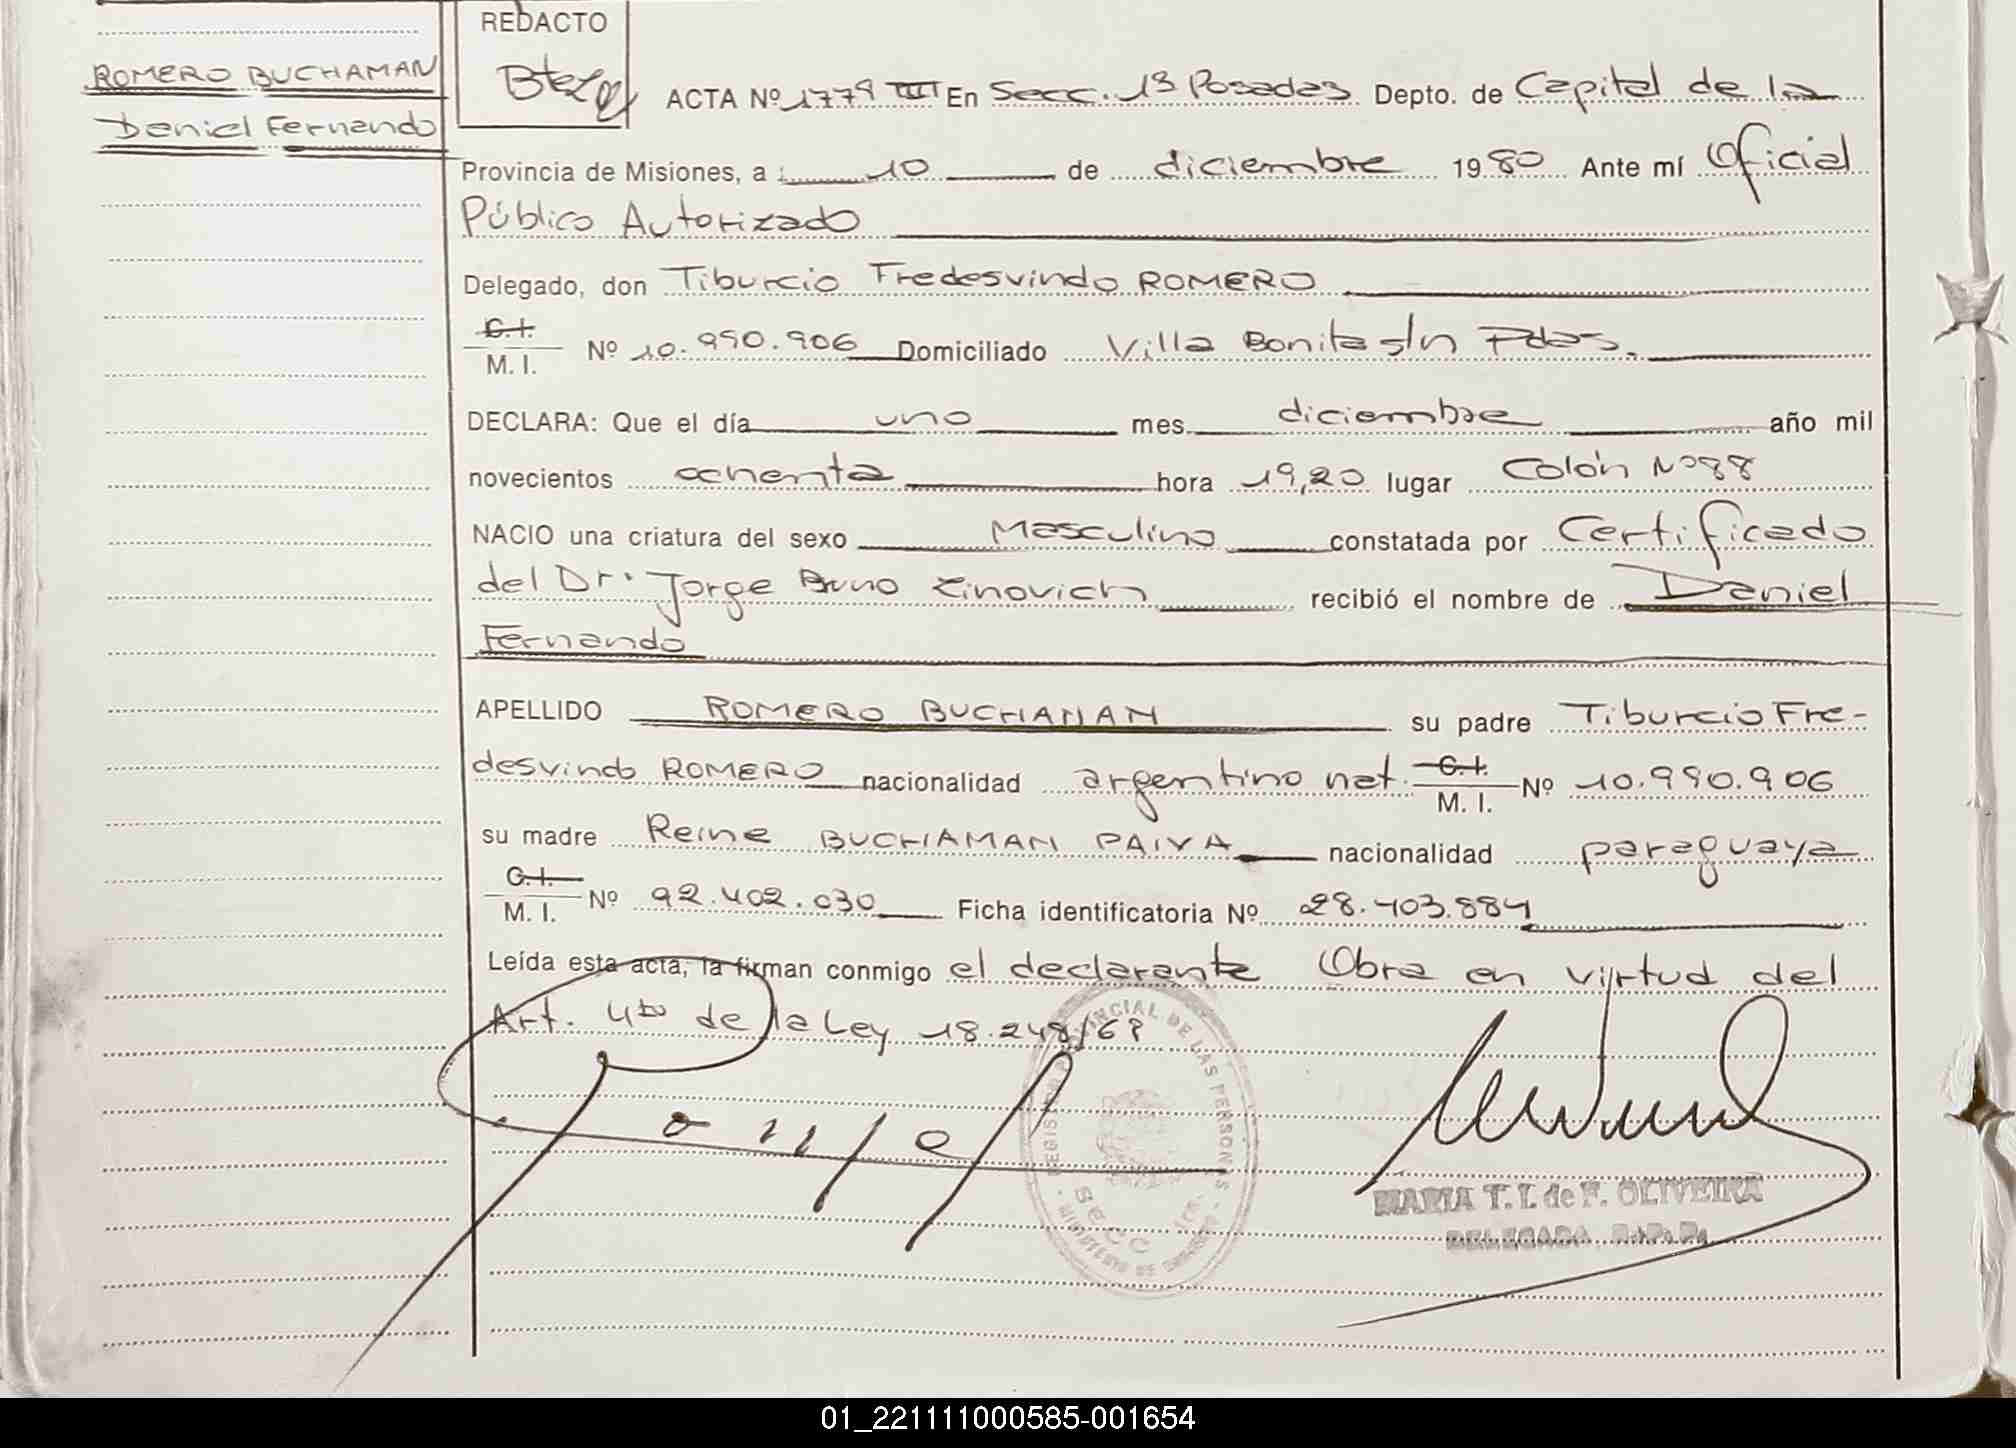 REDACTO
ROMERO BUCHAMAN
Daniel Fernando
ACTA Nº 1779 TIII En Secc. 1ª Posadas Depto. de Capital de la
Provincia de Misiones, a 10 de diciembre 1980 Ante mí Oficial
Público Autorizado
Delegado, don Tiburcio Fredesvindo ROMERO
C.I.
M. I. Nº 10.990.906 Domiciliado Villa Bonita s/n Pdas.
DECLARA: Que el día uno mes diciembre año mil
novecientos ochenta hora 19,20 lugar Colón Nº 88
NACIO una criatura del sexo Masculino constatada por Certificado
del Dr. Jorge Bruno Zinovich recibió el nombre de Daniel
Fernando
APELLIDO ROMERO BUCHAMAN su padre Tiburcio Fre-
desvindo ROMERO nacionalidad argentino nat. C.I. M. I. Nº 10.990.906
su madre Reine BUCHAMAN PAIVA nacionalidad paraguaya
C.I.
M. I. Nº 92.402.030 Ficha identificatoria Nº 28.403.884
Leída esta acta, la firman conmigo el declarante Obra en virtud del
Art. 4to de la Ley 18.248/69
REGISTRO PROVINCIAL DE LAS PERSONAS
MINISTERIO DE GOBIERNO
SECC 1ra.
MARIA T. I. de F. OLIVEIRA
DELEGADA R.P.P.
01_221111000585-001654